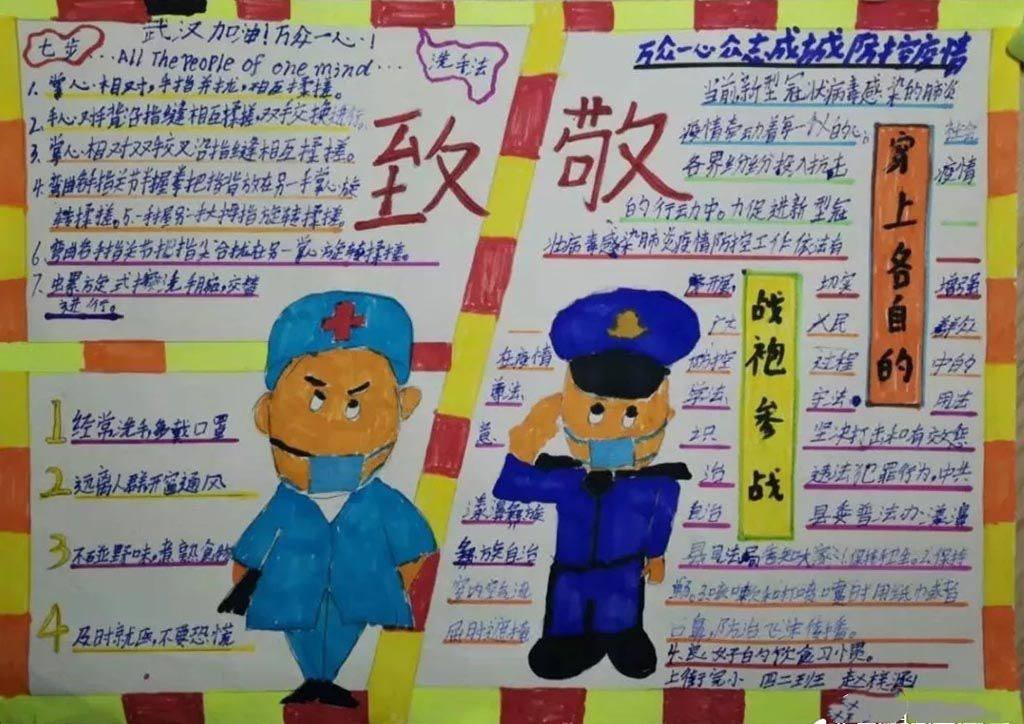 七步
武汉加油!万众一心!
...All The People of one mind...
洗手法
1. 掌心相对,手指并拢,相互揉搓。
2. 手心对手背沿指缝相互揉搓,双手交换进行。
3. 掌心相对双手交叉沿指缝相互揉搓。
4. 弯曲各手指关节半握拳把指背放在另一手掌心旋
转揉搓。5.一手握另一手大拇指旋转揉搓。
6. 弯曲各手指关节把指尖合拢在另一掌心旋转揉搓。
7. 螺旋式擦洗手腕,交替
进行。
致敬
1 经常洗手多戴口罩
2 远离人群开窗通风
3 不碰野味,煮熟食物
4 及时就医,不要恐慌
万众一心众志成城防控疫情
当前,新型冠状病毒感染的肺炎
疫情牵动着每一个人的心。社会
各界纷纷投入抗击 疫情
的行动中。力促进新型冠
状病毒感染肺炎疫情防控工作依法有
序开展, 切实 增强
广大 人民 群众
在疫情 防控 过程 中的
尊法 学法 守法 用法
意 识 坚决打击和有效惩
治 违法犯罪行为,中共
漾濞彝族 自治 县委普法办、漾濞
彝族自治 县司法局告知大家:1.保持卫生。2.保持
室内空气流 畅。3.咳嗽和打喷嚏时用纸巾或者
屈肘遮掩 口鼻,防治飞沫传播。
4.良好的饮食习惯。
穿上各自的
战袍参战
上街完小 四二班